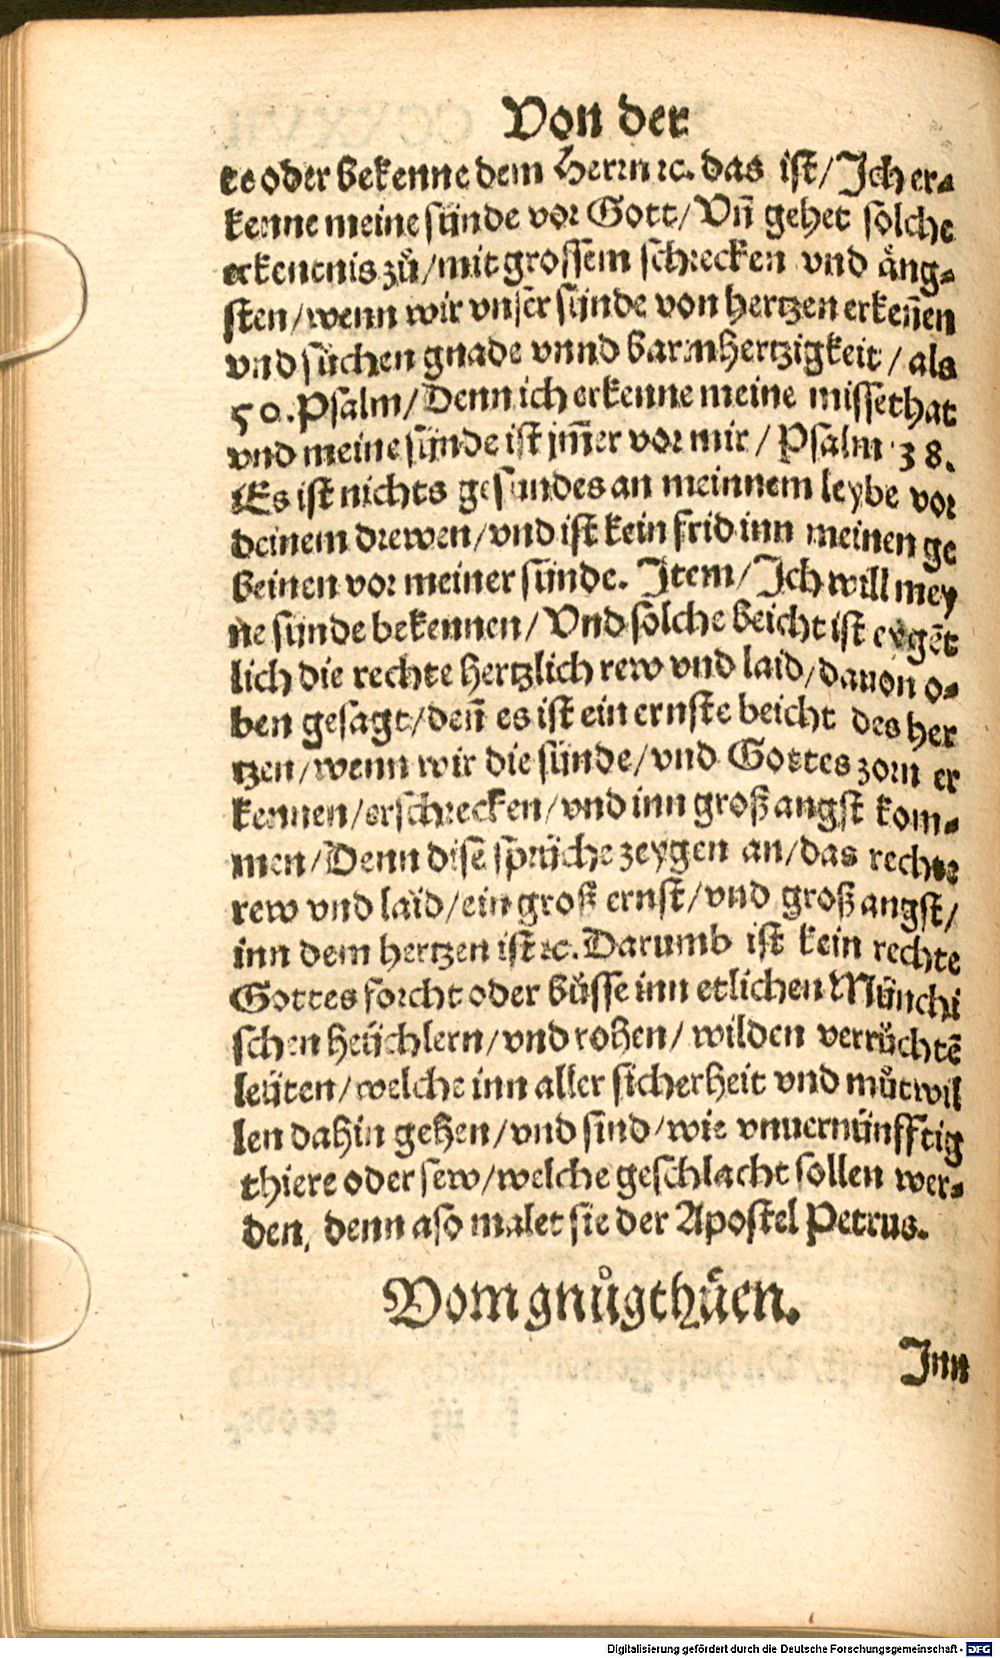 Von der
te oder bekenne dem Herrn ꝛc. das ist / Ich er-
kenne meine sünde vor Gott / Vñ gehet solche
erkentnis zů / mit grossem schrecken vnd ång-
sten / wenn wir vnser sünde von hertzen erkeñen
vnd sůchen gnade vnnd barmhertzigkeit / als
50. Psalm / Denn ich erkenne meine missethat
vnd meine sünde ist jm̃er vor mir / Psalm 38.
Es ist nichts gesundes an meinnem leybe vor
deinem drewen / vnd ist kein frid inn meinen ge
beinen vor meiner sünde. Item / Ich will mey
ne sünde bekennen / Vnd solche beicht ist eygẽt
lich die rechte hertzlich rew vnd laid / dauon o-
ben gesagt / deñ es ist ein ernste beicht des her
tzen / wenn wir die sünde / vnd Gottes zorn er
kennen / erschrecken / vnd inn groß angst kom-
men / Denn dise sprüche zeygen an / das rechte
rew vnd laid / ein groß ernst / vnd groß angst /
inn dem hertzen ist ꝛc. Darumb ist kein rechte
Gottes forcht oder bůsse inn etlichen Münchi
schen heüchlern / vnd rohen / wilden verrůchtẽ
leüten / welche inn aller sicherheit vnd můtwil
len dahin gehen / vnd sind / wie vnuernünfftig
thiere oder sew / welche geschlacht sollen wer-
den, denn aso malet sie der Apostel Petrus.
Vom gnůgthůen.
Inn
Digitalisierung gefördert durch die Deutsche Forschungsgemeinschaft - DFG